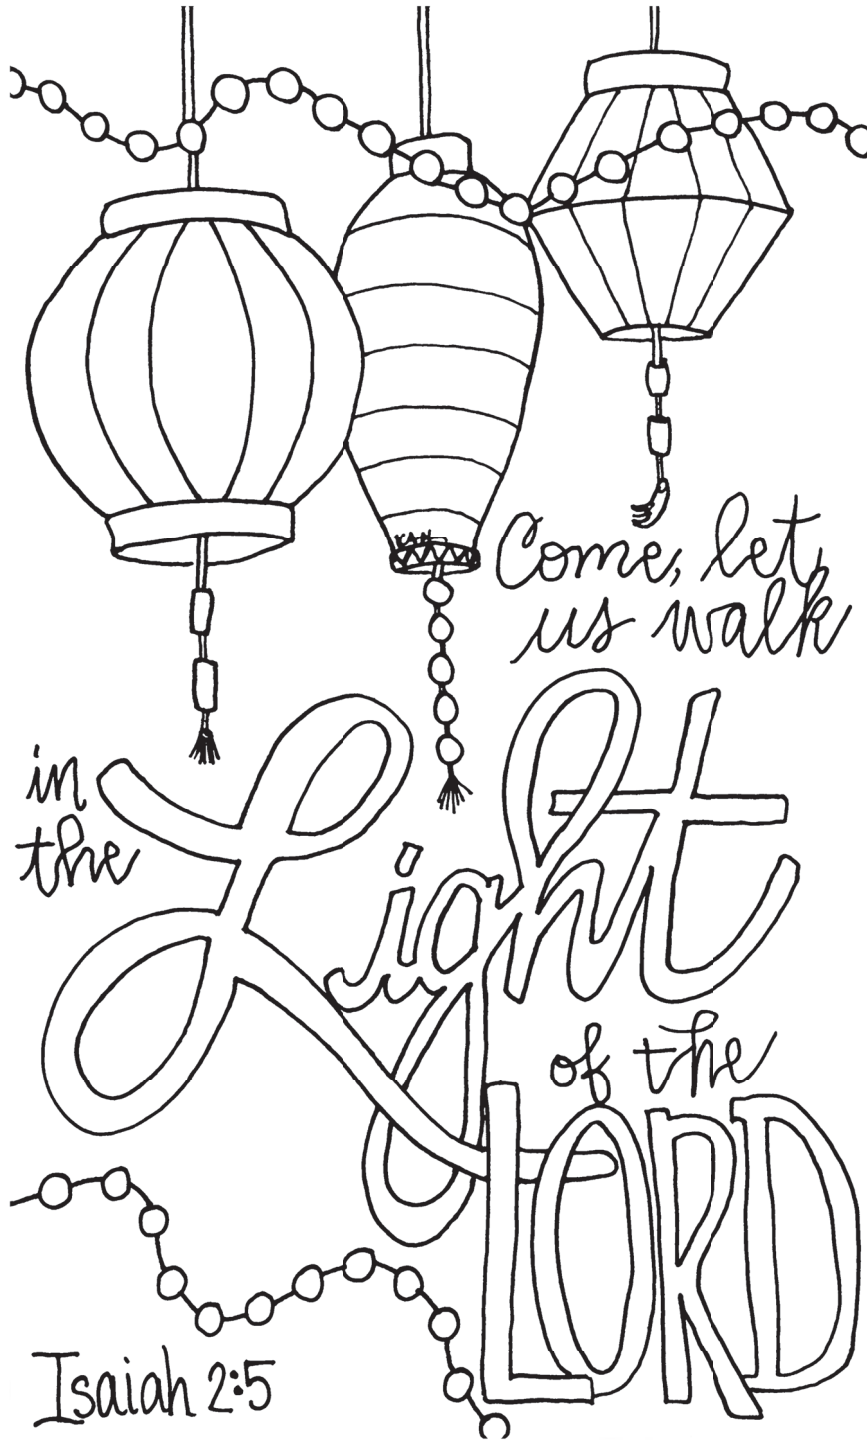 KAN
Come, let
us walk
in
the
Light
of the
LORD
Isaiah 2:5